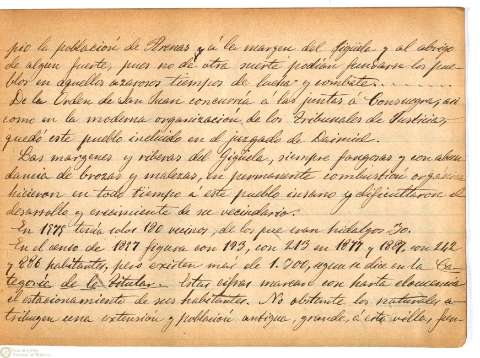 pió la población de Arenas y á la margen del Gigüela y al abrigo
de algun fuerte, pues no de otra suerte podian fundarse los pue-
blos en aquellos azarosos tiempos de lucha y combate.........
De la Orden de San Juan concurria a las juntas a Consuegra, asi
como en la moderna organizacion de los Tribunales de Justicia,
quedó este pueblo incluido en el juzgado de Daimiel.
Las margenes y riberas del Gigüela, siempre fangosas y con abun
dancia de brozas y malezas, en permanente combustión organica
hicieron en todo tiempo á este pueblo insano y dificultaron el
desarrollo y crecimiento de su vecindario.
En 1575 tenia solos 190 vecinos, de los que eran hidalgos 30.
En el censo de 1857 figura con 193, con 213 en 1877 y 1887, con 242
y 896 habitantes, pero existen más de 1.300, segun se dice en la Ca-
tegoria de la Titular. Estas cifras marcan con harta elocuencia
el estacionamiento de sus habitantes. No obstante los naturales a-
tribuyen una extensión y población antigua, grande, á esta villa, fun-